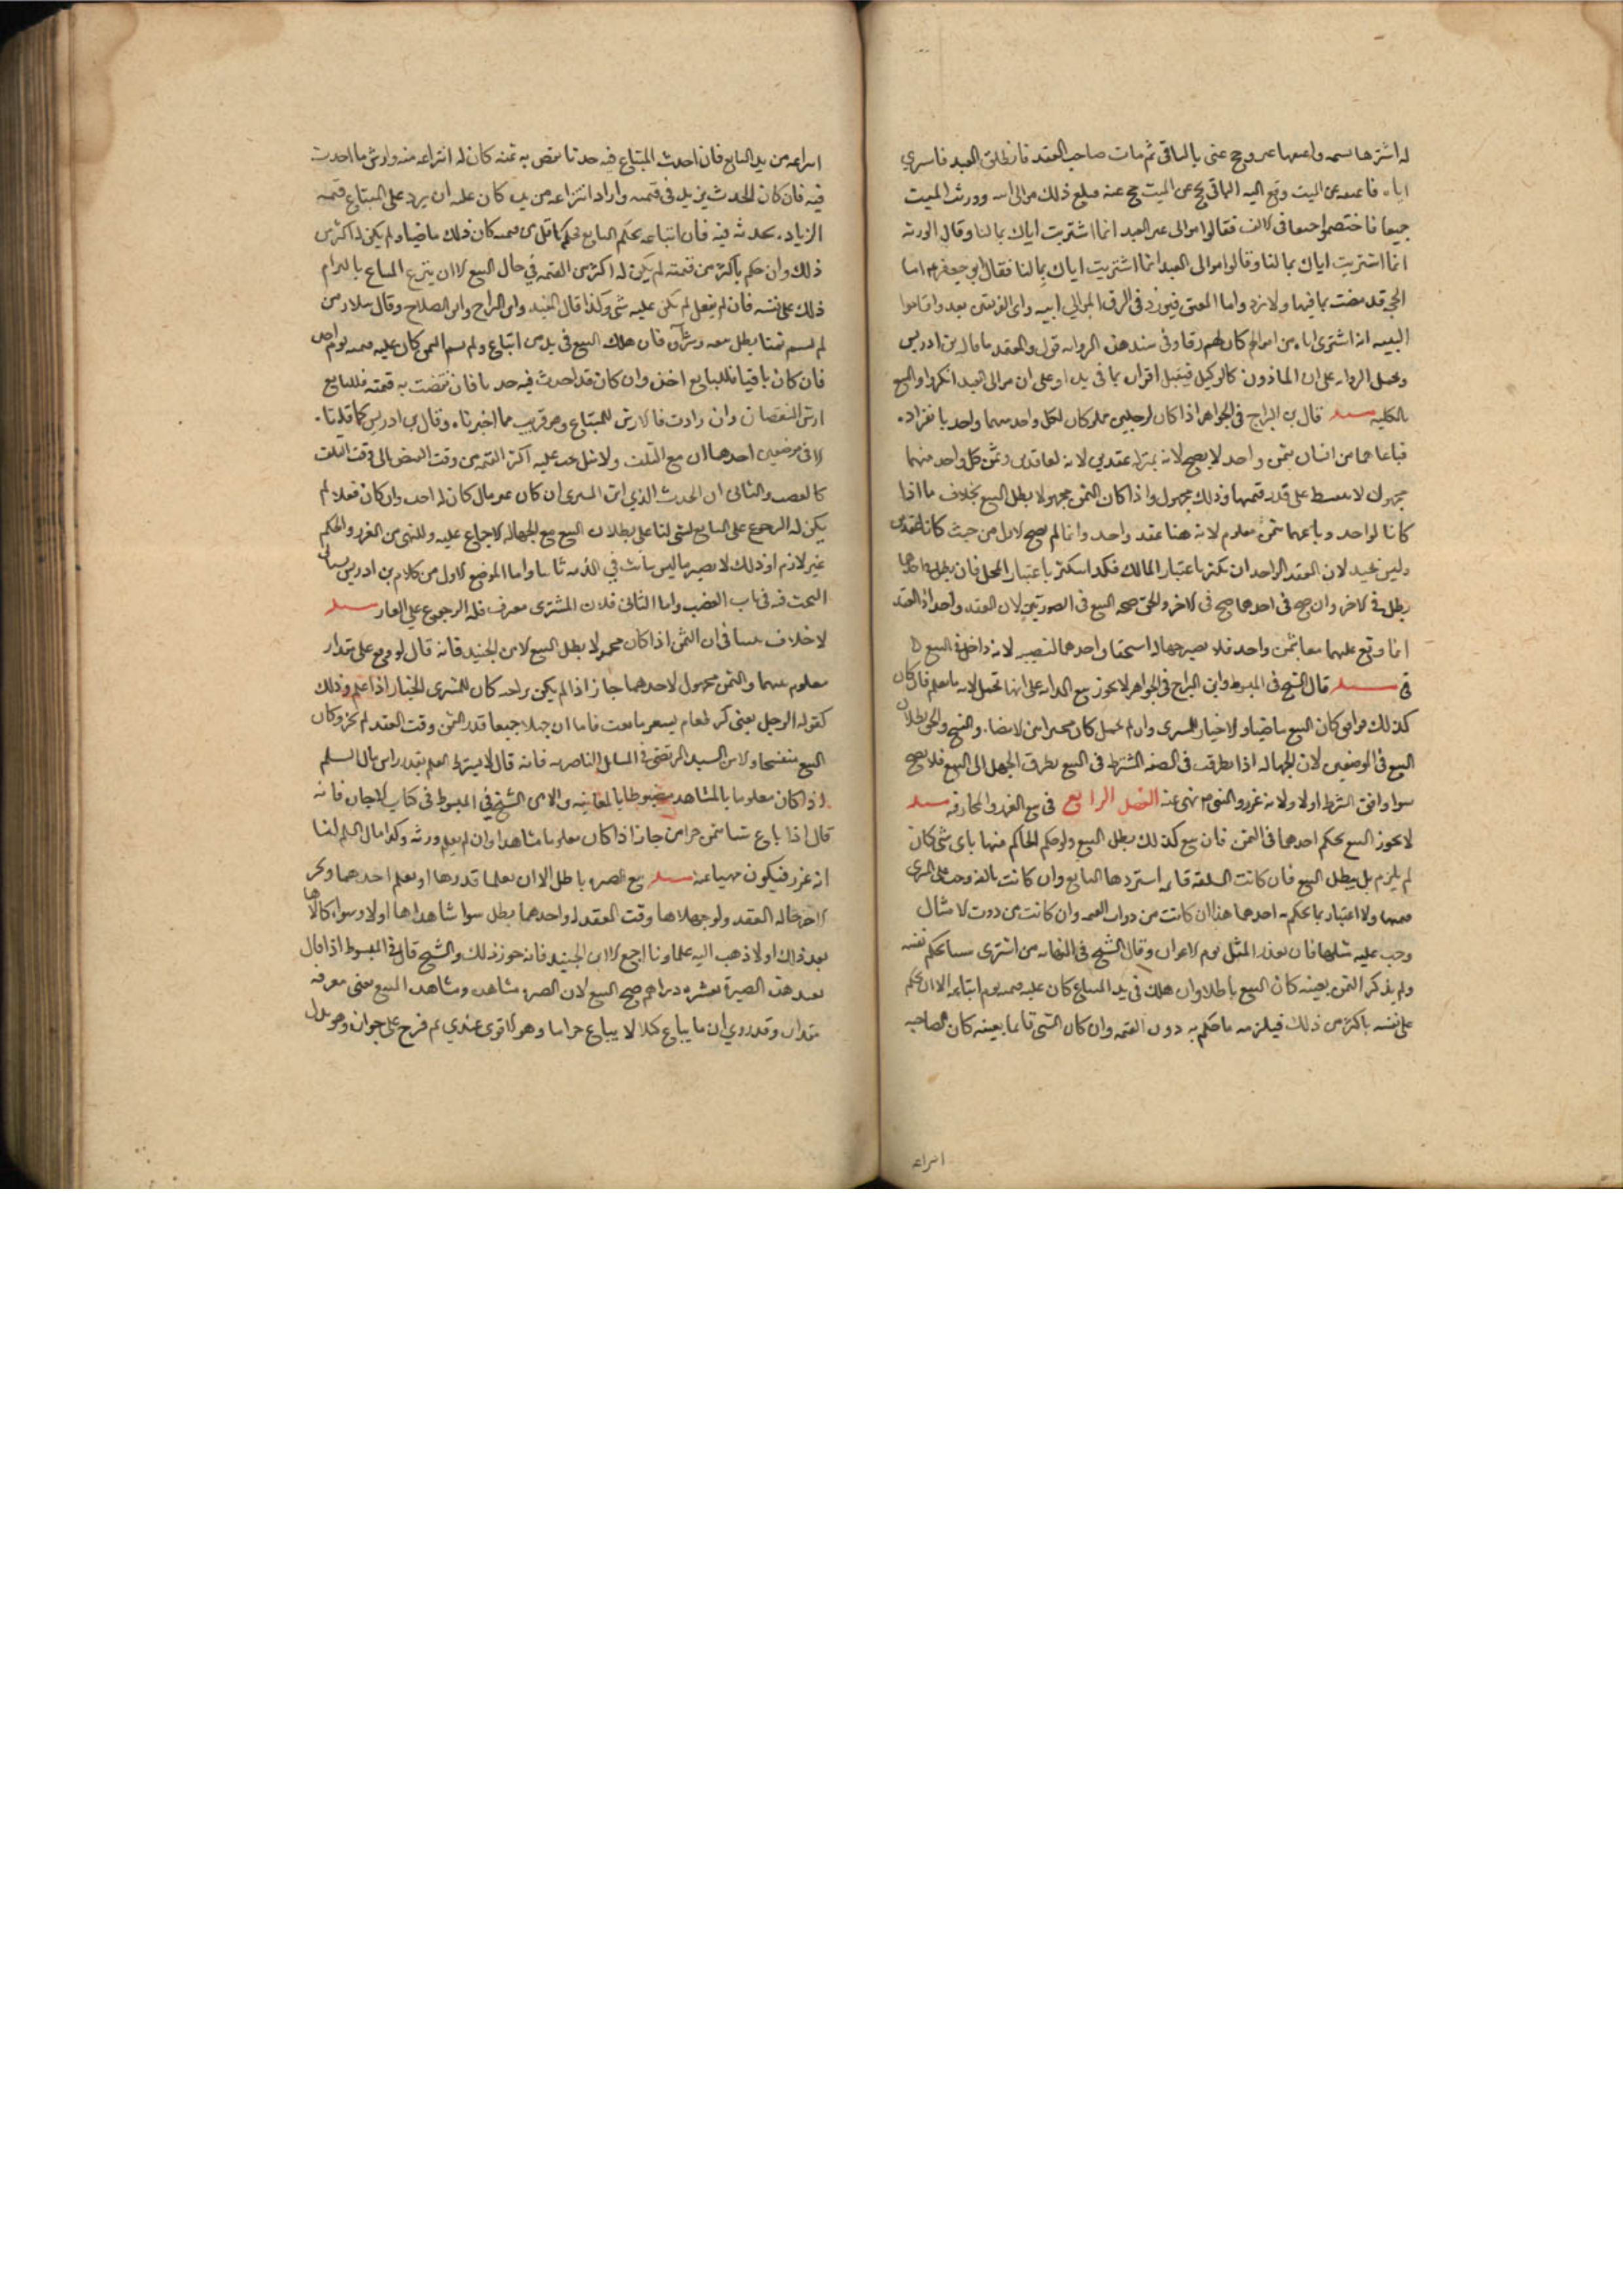 له اشتر بها نسمه واعتقها عني وحج عني بالباقي ثم مات صاحب العقد فانطلق العبد فاشترى
اباه فاعتقه عن الميت ودفع اليه الباقي يحج عن الميت فحج عنه فبلغ ذلك موالي ابيه وورثه الميت
جميعا فاختصموا جميعا في الالف فقالوا موالي العبد انما اشتريت اباك بمالنا وقال الورثه
انما اشتريت اباك بمالنا وقالوا موالي العبد انما اشتريت اباك بمالنا فقال ابو جعفر اما
الحج قد مضت بما فيها ولا يرد واما المعتق فيرد في الرق لموالي ابيه واي الفريقين بعد واقاموا
البينه انه اشترى اباه من اموالهم كان لهم رقا وفي سند هذه الروايه قول والمعتمد ما قاله بن ادريس
وتحمل الروايه على ان الماذون كالوكيل فيقبل اقراره بما في يده او على ان موالي العبد انكروا البيع
بالكليه مسله قال بن البراج في الجواهر اذا كان لرجلين مملوكان لكل واحد منهما واحد بانفراده
فباعاهما من انسان بثمن واحد لا يصح لانه بمنزله عقدين لانه لعاقدين وثمن كل واحد منهما
مجهول لانه يقسط على قدر قيمتهما وذلك مجهول واذا كان الثمن مجهولا بطل البيع بخلاف ما اذا
كانا لواحد وباعهما بثمن معلوم لانه هنا عقد واحد وانما لم يصح الاول من حيث كانا عقدين
وليس بجيد لان العقد الواحد ان تكثر باعتبار المالك فكذا يتكثر باعتبار المحل فان بطل باحدهما
بطل في الاخر وان صح في احدهما صح في الاخر والحق صحه البيع في الصورتين لان العقد واحد اذ العقد
انما وقع عليهما معا بثمن واحد فلا يضر جهاله استحقاق احدهما للتقسيط لانه داخل في البيع
مسله قال الشيخ في المبسوط وابن البراج في الجواهر لا يجوز بيع الدابه على انها تحمل لانه لا يعلم فان كان
كذلك فوافق كان البيع ماضيا ولا خيار للمشتري وان لم تحمل كان مخيرا بين الامضاء والفسخ والحق بطلان
البيع في الموضعين لان الجهاله اذا تطرقت في الصفه المشترطه في البيع تطرق الجهل الى البيع فلا يصح
سواء وافق الشرط اولا ولانه غرر والنبي نهى عنه الفصل الرابع في بيع الغرر والمجازفه مسله
لا يجوز البيع بحكم احدهما في الثمن فان بيع كذلك بطل البيع ولو حكم الحاكم منهما باي شي كان
لم يلزم بل يبطل البيع فان كانت السلعه قائمه استردها البايع وان كانت تالفه وجب على المشتري
قيمتها ولا اعتبار بما يحكم به احدهما هذا ان كانت من ذوات القيمه وان كانت من ذوات الامثال
وجب عليه مثلها فان تعذر المثل يوم الاعواز وقال الشيخ في النهايه من اشترى شيا بحكم نفسه
ولم يذكر الثمن بعينه كان البيع باطلا وان هلك في يد المبتاع كان عليه قيمته يوم ابتاعه الا ان يحكم
على نفسه باكثر من ذلك فيلزمه ما حكم به دون القيمه وان كان الشي قائما بعينه كان لصاحبه
انتزاعه
انتزاعه من يد المبتاع فان احدث المبتاع فيه حدثا نقص به ثمنه كان له انتزاعه منه وارش ما احدث
فيه فان كان الحدث يزيد في قيمته واراد انتزاعه من يده كان عليه ان يرد على المبتاع قيمه
الزياده بحدثه فيه فان ابتاعه بحكم البايع فحكم باقل من قيمته كان ذلك ماضيا ولم يكن له اكثر من
ذلك وان حكم باكثر من قيمته لم يكن له اكثر من القيمه في حال البيع الا ان يتبرع المبتاع بالتزام
ذلك على نفسه فان لم يفعل لم يكن عليه شي وكذا قال المفيد وابن البراج وابو الصلاح وقال سلار من
لم يسم ثمنا بطل بيعه وشراه فان هلك المبيع في يد من ابتاع ولم يسم الثمن كان عليه قيمته يوم اخذه
فان كان باقيا فللبايع اخذه وان كان قد احدث فيه حدثا فان نقصت به قيمته فللبايع
ارش النقصان وان زادت فالارش للمبتاع وهو قريب مما اخترناه وقال بن ادريس كما قلنا
الا في موضعين احدهما ان مع التلف ولا مثل يجب عليه اكثر القيمه من وقت القبض الى وقت التلف
كالغصب والثاني ان الحدث الذي من المشتري ان كان عين مال كان له اخذه وان كان فعلا لم
يكن له الرجوع على البايع بشي لنا على بطلان البيع مع الجهاله الاجماع عليه وللنهي عن الغرر والحكم
غير لازم اذ ذلك لا يصير ما ليس ثابت في الذمه ثابتا واما الموضع الاول من كلام بن ادريس سياتي
البحث فيه في باب الغصب واما الثاني فلان المشتري مغرور فله الرجوع على الغار مسله
لا خلاف بيننا في ان الثمن اذا كان مجهولا بطل البيع الا من الجنيد فانه قال لو وقع على مقدار
معلوم بينهما والثمن مجهول لاحدهما جاز اذا لم يكن يواجبه كان للمشتري الخيار اذا علم وذلك
كقول الرجل بعني كر طعام بسعر ما بعت فاما ان جهلا جميعا قدر الثمن وقت العقد لم يجز وكان
البيع منفسخا والا من السيد المرتضى في المسائل الناصريه فانه قال لا يشترط العلم بقدر راس مال السلم
اذا كان معلوما بالمشاهده مضبوطا بالمعاينه والا من الشيخ في المبسوط في كتاب الاجاره فانه
قال اذا باع شيا بثمن جزاف جاز اذا كان معلوما مشاهدا وان لم يعلم وزنه وكذا مال السلم لنا
انه غرر فيكون منهيا عنه مسله بيع الصبره باطل الا ان يعلما قدرها او يعلم احدهما ويخبر
الاخر حاله العقد ولو جهلاها وقت العقد او احدهما بطل سواء شاهداها اولا وسواء كالاها
بعد ذلك اولا ذهب اليه علماونا اجمع الا ابن الجنيد فانه جوز ذلك والشيخ قال في المبسوط اذا قال
بعتك هذه الصبره بعشره دراهم صح البيع لان الصبره مشاهده ومشاهده المبيع تغني معرفه
مقداره وقد روي ان ما يباع كيلا لا يباع جزافا وهو الاقوى عندي ثم فرع على جوازه وهو يدل